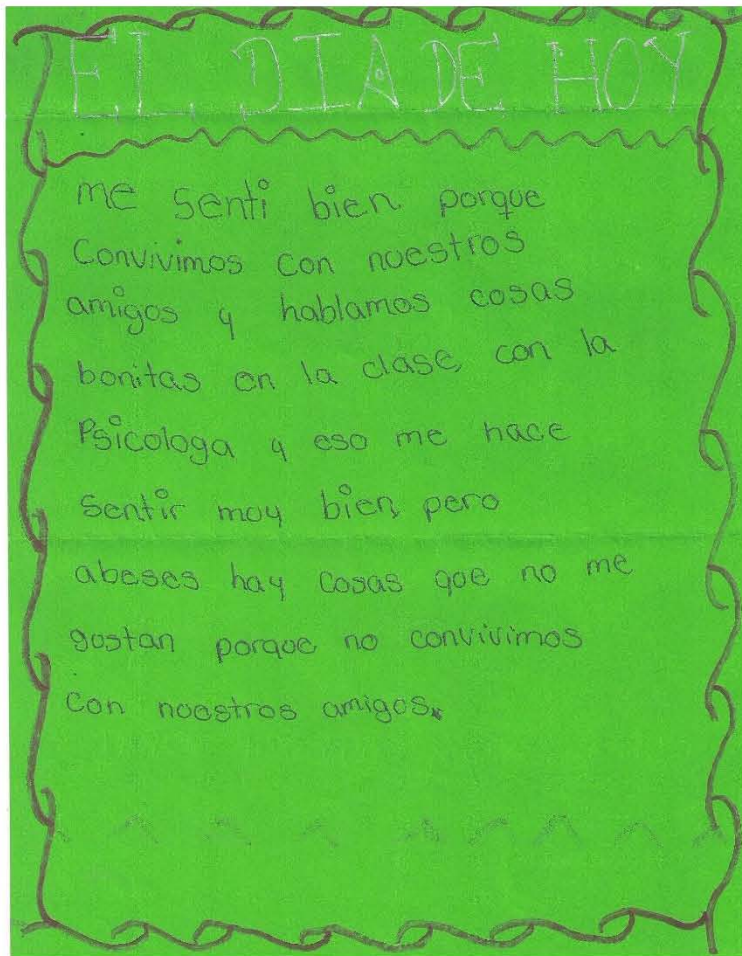 EL DIA DE HOY
me senti bien porque
Convivimos con nuestros
amigos y hablamos cosas
bonitas en la clase con la
Psicologa y eso me hace
Sentir muy bien pero
abeses hay cosas que no me
gustan porque no convivimos
con nuestros amigos.